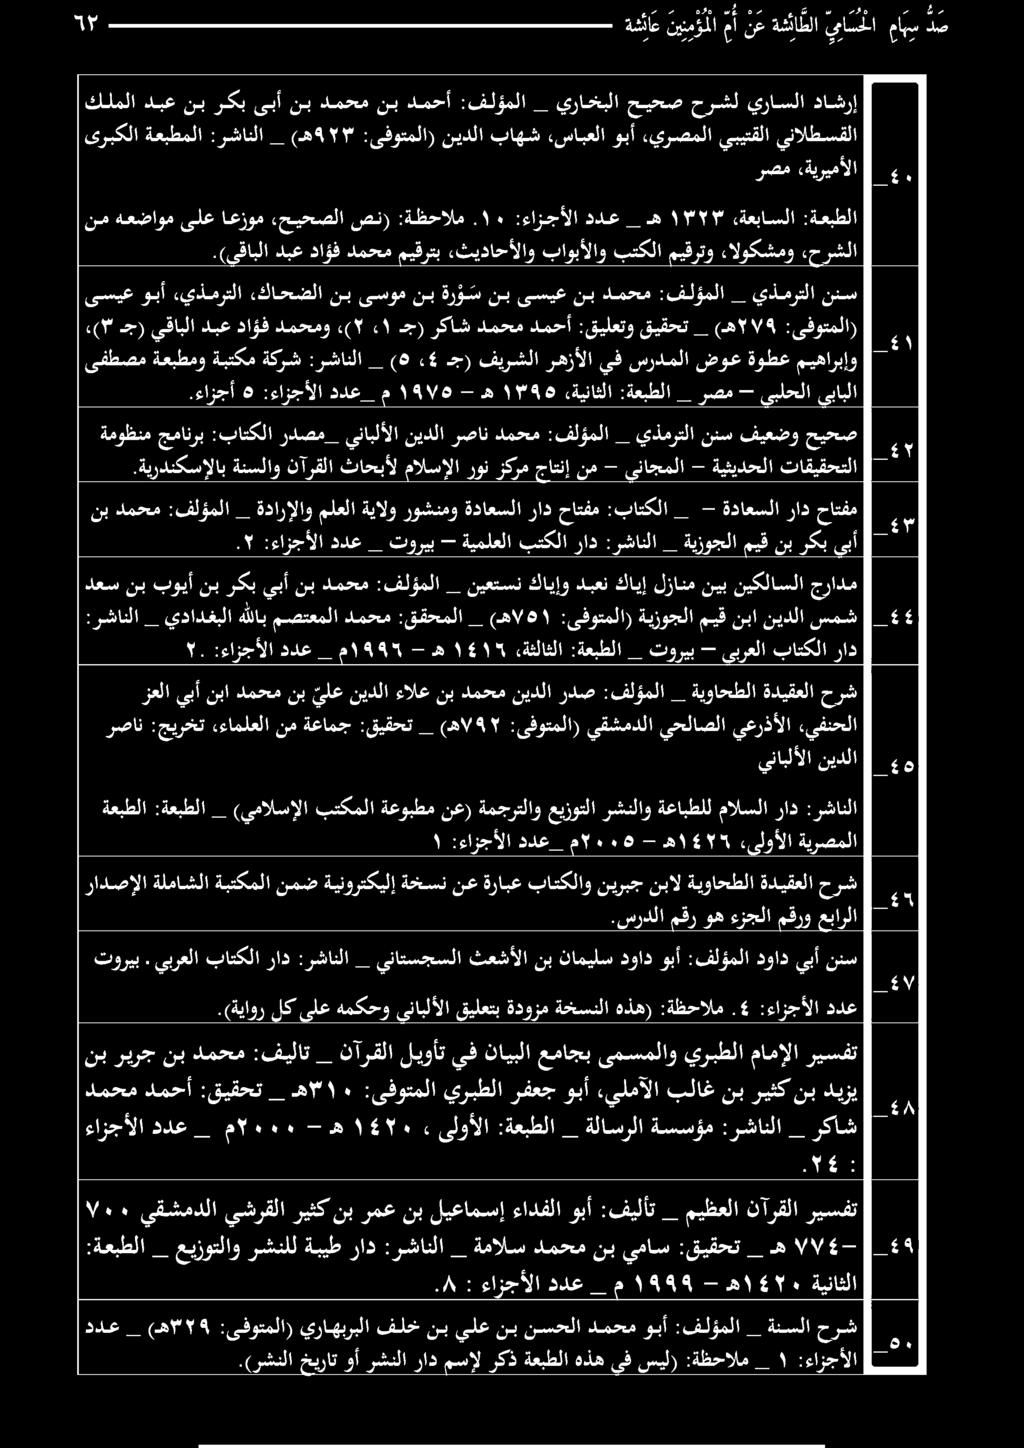 صَدُّ سِهَامِ الْحُسَامِيِّ الطَّائِشة عَنْ أُمِّ الْمُؤْمِنِينَ عَائِشة ٦٢
٤٠_
إرشاد الساري لشرح صحيح البخاري _ المؤلف: أحمد بن محمد بن أبى بكر بن عبد الملك
القسطلاني القتيبي المصري، أبو العباس، شهاب الدين (المتوفى: ٩٢٣هـ) _ الناشر: المطبعة الكبرى
الأميرية، مصر
الطبعة: السابعة، ١٣٢٣ هـ _ عدد الأجزاء: ١٠. ملاحظة: (نص الصحيح، موزعا على مواضعه من
الشرح، ومشكولا، وترقيم الكتب والأبواب والأحاديث، بترقيم محمد فؤاد عبد الباقي).
٤١_
سنن الترمذي _ المؤلف: محمد بن عيسى بن سَوْرة بن موسى بن الضحاك، الترمذي، أبو عيسى
(المتوفى: ٢٧٩هـ) _ تحقيق وتعليق: أحمد محمد شاكر (جـ ١، ٢)، ومحمد فؤاد عبد الباقي (جـ ٣)،
وإبراهيم عطوة عوض المدرس في الأزهر الشريف (جـ ٤، ٥) _ الناشر: شركة مكتبة ومطبعة مصطفى
البابي الحلبي – مصر _ الطبعة: الثانية، ١٣٩٥ هـ - ١٩٧٥ م _عدد الأجزاء: ٥ أجزاء.
٤٢_
صحيح وضعيف سنن الترمذي _ المؤلف: محمد ناصر الدين الألباني _مصدر الكتاب: برنامج منظومة
التحقيقات الحديثية - المجاني - من إنتاج مركز نور الإسلام لأبحاث القرآن والسنة بالإسكندرية.
٤٣_
مفتاح دار السعادة - _ الكتاب: مفتاح دار السعادة ومنشور ولاية العلم والإرادة _ المؤلف: محمد بن
أبي بكر بن قيم الجوزية _ الناشر: دار الكتب العلمية – بيروت _ عدد الأجزاء: ٢.
٤٤_
مدارج السالكين بين منازل إياك نعبد وإياك نستعين _ المؤلف: محمد بن أبي بكر بن أيوب بن سعد
شمس الدين ابن قيم الجوزية (المتوفى: ٧٥١هـ) _ المحقق: محمد المعتصم بالله البغدادي _ الناشر:
دار الكتاب العربي – بيروت _ الطبعة: الثالثة، ١٤١٦ هـ - ١٩٩٦م _ عدد الأجزاء: ٢.
٤٥_
شرح العقيدة الطحاوية _ المؤلف: صدر الدين محمد بن علاء الدين عليّ بن محمد ابن أبي العز
الحنفي، الأذرعي الصالحي الدمشقي (المتوفى: ٧٩٢هـ) _ تحقيق: جماعة من العلماء، تخريج: ناصر
الدين الألباني
الناشر: دار السلام للطباعة والنشر التوزيع والترجمة (عن مطبوعة المكتب الإسلامي) _ الطبعة: الطبعة
المصرية الأولى، ١٤٢٦هـ - ٢٠٠٥م _عدد الأجزاء: ١
٤٦_
شرح العقيدة الطحاوية لابن جبرين والكتاب عبارة عن نسخة إليكترونية ضمن المكتبة الشاملة الإصدار
الرابع ورقم الجزء هو رقم الدرس.
٤٧_
سنن أبي داود المؤلف: أبو داود سليمان بن الأشعث السجستاني _ الناشر: دار الكتاب العربي. بيروت
عدد الأجزاء: ٤. ملاحظة: (هذه النسخة مزودة بتعليق الألباني وحكمه على كل رواية).
٤٨_
تفسير الإمام الطبري والمسمى بجامع البيان في تأويل القرآن _ تاليف: محمد بن جرير بن
يزيد بن كثير بن غالب الآملي، أبو جعفر الطبري المتوفى: ٣١٠هـ _ تحقيق: أحمد محمد
شاكر _ الناشر: مؤسسة الرسالة _ الطبعة: الأولى ، ١٤٢٠ هـ - ٢٠٠٠م _ عدد الأجزاء
: ٢٤.
٤٩_
تفسير القرآن العظيم _ تأليف: أبو الفداء إسماعيل بن عمر بن كثير القرشي الدمشقي ٧٠٠
-٧٧٤ هـ _ تحقيق: سامي بن محمد سلامة _ الناشر: دار طيبة للنشر والتوزيع _ الطبعة:
الثانية ١٤٢٠هـ - ١٩٩٩ م _ عدد الأجزاء : ٨.
٥٠_
شرح السنة _ المؤلف: أبو محمد الحسن بن علي بن خلف البربهاري (المتوفى: ٣٢٩هـ) _ عدد
الأجزاء: ١ _ ملاحظة: (ليس في هذه الطبعة ذكر لإسم دار النشر أو تاريخ النشر).